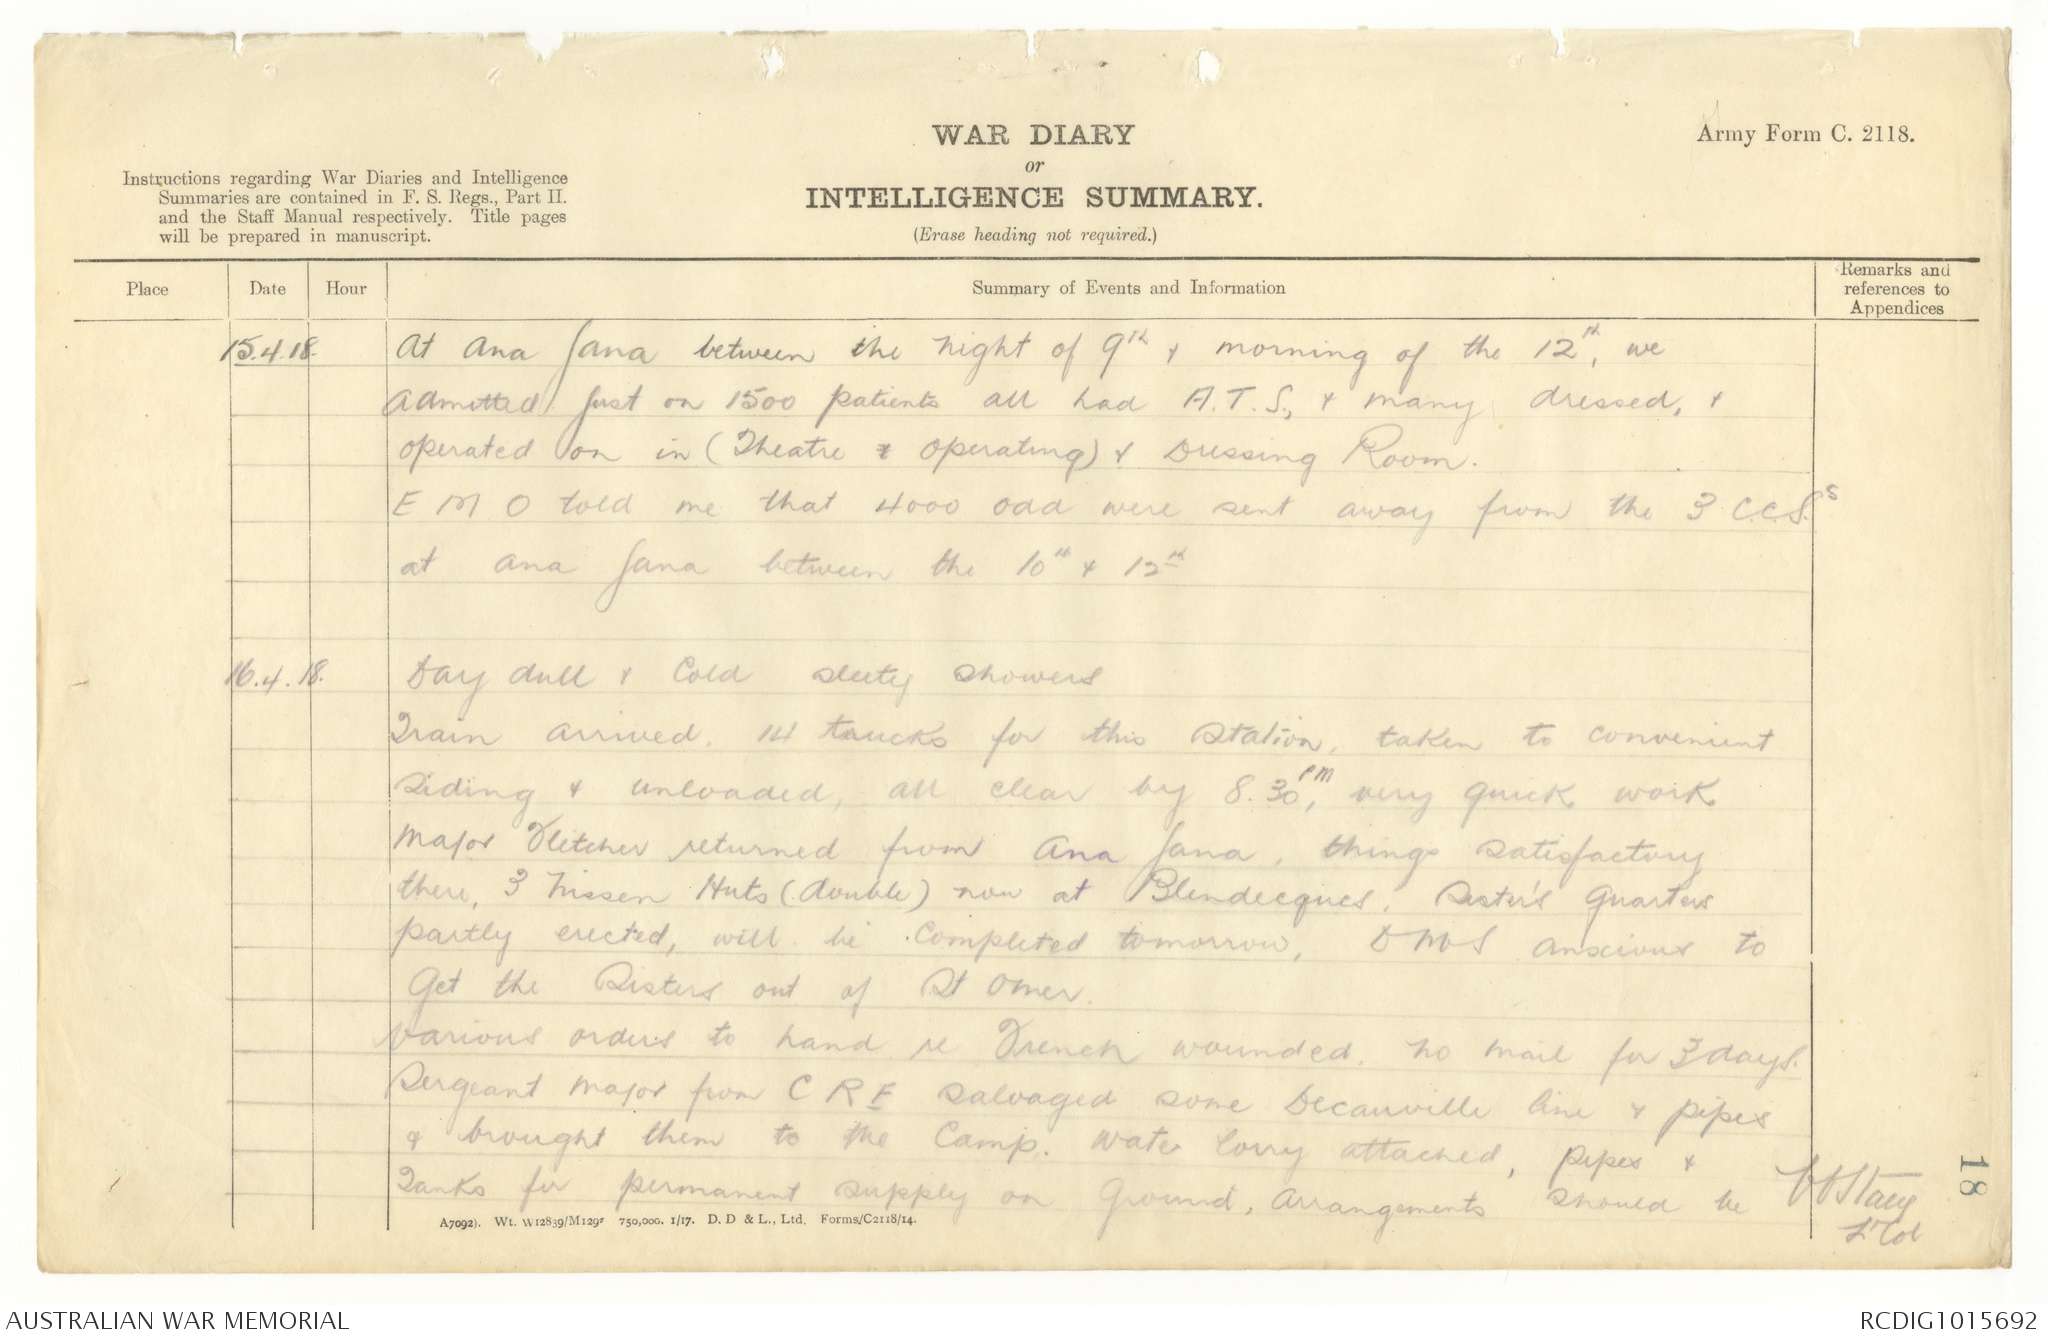 WAR DIARY
or
INTELLIGENCE SUMMARY.
(Erase heading not required.)
Army Form C. 2118.
Instructions regarding War Diaries and Intelligence
Summaries are contained in F. S. Regs., Part II.
and the Staff Manual respectively. Title pages
will be prepared in manuscript.
Place Date Hour Summary of Events and Information Remarks and references to Appendices
15.4.18. At Ana Jana between the night of 9th & morning of the 12th, we
admitted just on 1500 patients all had A.T.S., & many dressed, &
operated on in (Theatre & operating) & Dressing Room.
E M O told me that 4000 odd were sent away from the 3 C.C.S.s
at Ana Jana between the 10th & 12th
16.4.18. Day dull & cold sleety showers
Train arrived. 14 trucks for this station, taken to convenient
siding & unloaded, all clear by 8.30 PM, very quick work
Major Fletcher returned from Ana Jana, things satisfactory
there, 3 Nissen Huts (double) now at Blendecques. Sister's Quarters
partly erected, will be completed tomorrow, DMS anxious to
get the Sisters out of St Omer.
Various orders to hand re French wounded. No mail for 3 days.
Sergeant Major from C R E salvaged some Decauville line & pipes
& brought them to the Camp. Water lorry attached, pipes &
Tanks for permanent supply on ground, arrangements should be
Lt Col
18
A7092). Wt. W12839/M129 750,000. 1/17. D. D & L., Ltd. Forms/C2118/14.
AUSTRALIAN WAR MEMORIAL
RCDIG1015692